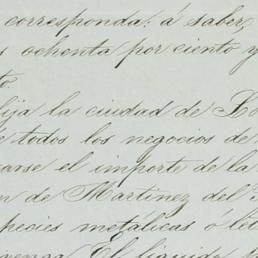 corresponda: á saber,
s ochenta por ciento y
to.
lija la ciudad de Lo
e todos los negocios de
arse el importe de la
n de Martinez del
species metálicas ó let
venga. El líquido